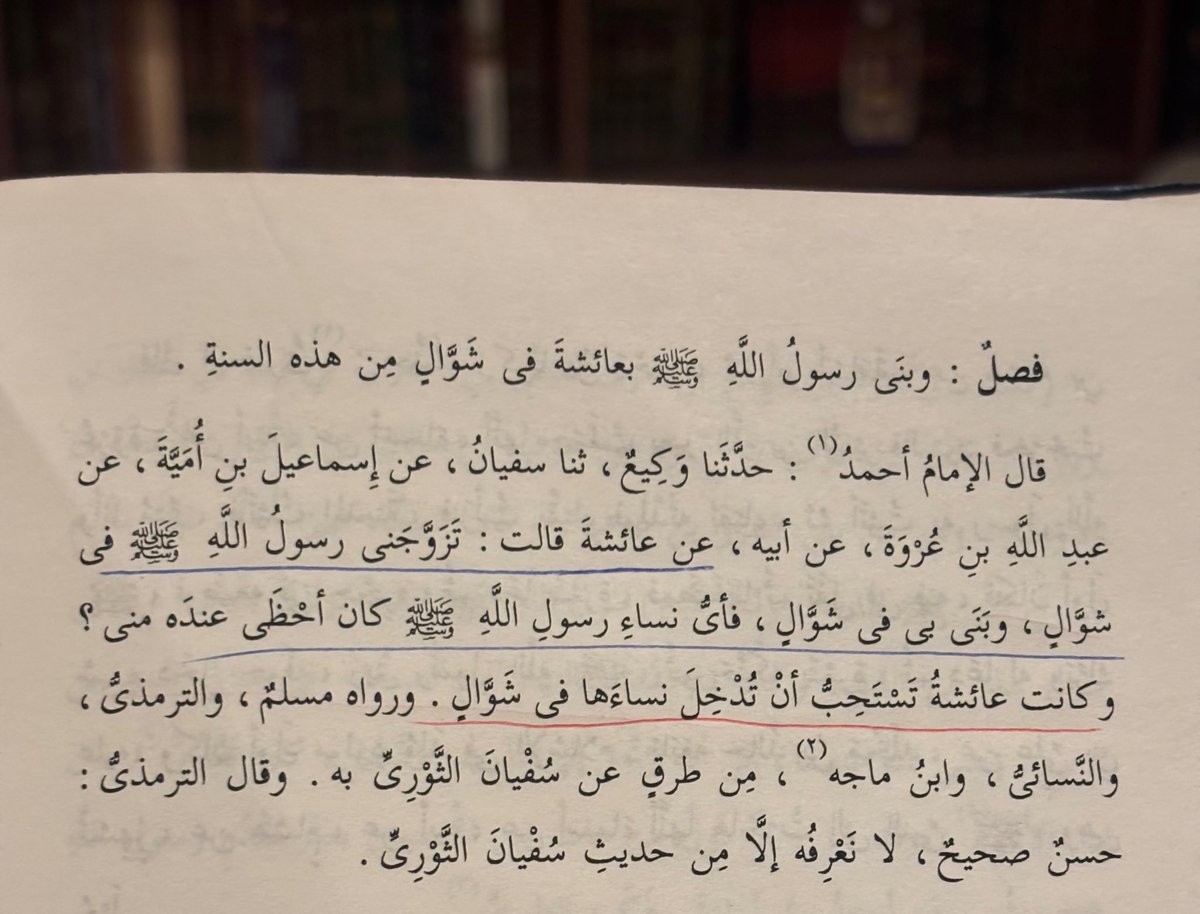 فصلٌ : وبنَى رسولُ اللَّهِ ﷺ بعائشةَ فى شَوَّالٍ مِن هذه السنةِ .
قال الإمامُ أحمدُ(١) : حدَّثَنا وَكِيعٌ ، ثنا سفيانُ ، عن إِسماعيلَ بنِ أُمَيَّةَ ، عن
عبدِ اللَّهِ بنِ عُرْوَةَ ، عن أبيه ، عن عائشةَ قالت : تَزَوَّجَنى رسولُ اللَّهِ ﷺ فى
شوَّالٍ ، وبَنَى بى فى شَوَّالٍ ، فأىُّ نساءِ رسولِ اللَّهِ ﷺ كان أحْظَى عندَه منى ؟
وكانت عائشةُ تَسْتَحِبُّ أنْ تُدْخِلَ نساءَها فى شَوَّالٍ . ورواه مسلمٌ ، والترمذىُّ ،
والنَّسائىُّ ، وابنُ ماجه(٢) ، مِن طرقٍ عن سُفْيانَ الثَّوْرِىِّ به . وقال الترمذىُّ :
حسنٌ صحيحٌ ، لا نَعْرِفُه إلَّا مِن حديثِ سُفْيانَ الثَّوْرِىِّ .